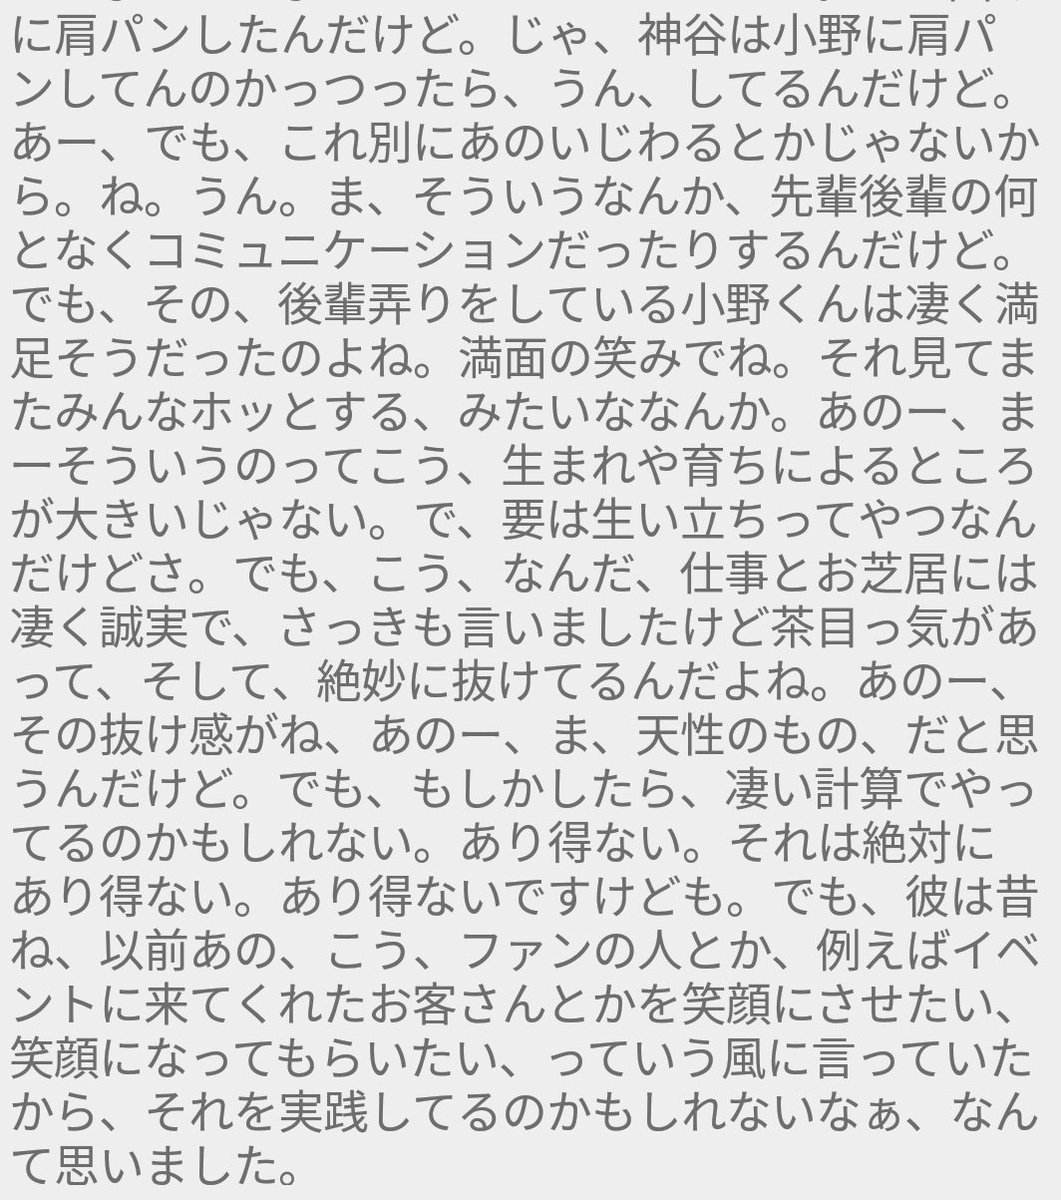 に肩パンしたんだけど。じゃ、神谷は小野に肩パ
ンしてんのかっつったら、うん、してるんだけど。
あー、でも、これ別にあのいじわるとかじゃないか
ら。ね。うん。ま、そういうなんか、先輩後輩の何
となくコミュニケーションだったりするんだけど。
でも、その、後輩弄りをしている小野くんは凄く満
足そうだったのよね。満面の笑みでね。それ見てま
たみんなホッとする、みたいななんか。あのー、ま
ーそういうのってこう、生まれや育ちによるところ
が大きいじゃない。で、要は生い立ちってやつなん
だけどさ。でも、こう、なんだ、仕事とお芝居には
凄く誠実で、さっきも言いましたけど茶目っ気があ
って、そして、絶妙に抜けてるんだよね。あのー、
その抜け感がね、あのー、ま、天性のもの、だと思
うんだけど。でも、もしかしたら、凄い計算でやっ
てるのかもしれない。あり得ない。それは絶対に
あり得ない。あり得ないですけども。でも、彼は昔
ね、以前あの、こう、ファンの人とか、例えばイベ
ントに来てくれたお客さんとかを笑顔にさせたい、
笑顔になってもらいたい、っていう風に言っていた
から、それを実践してるのかもしれないなぁ、なん
て思いました。